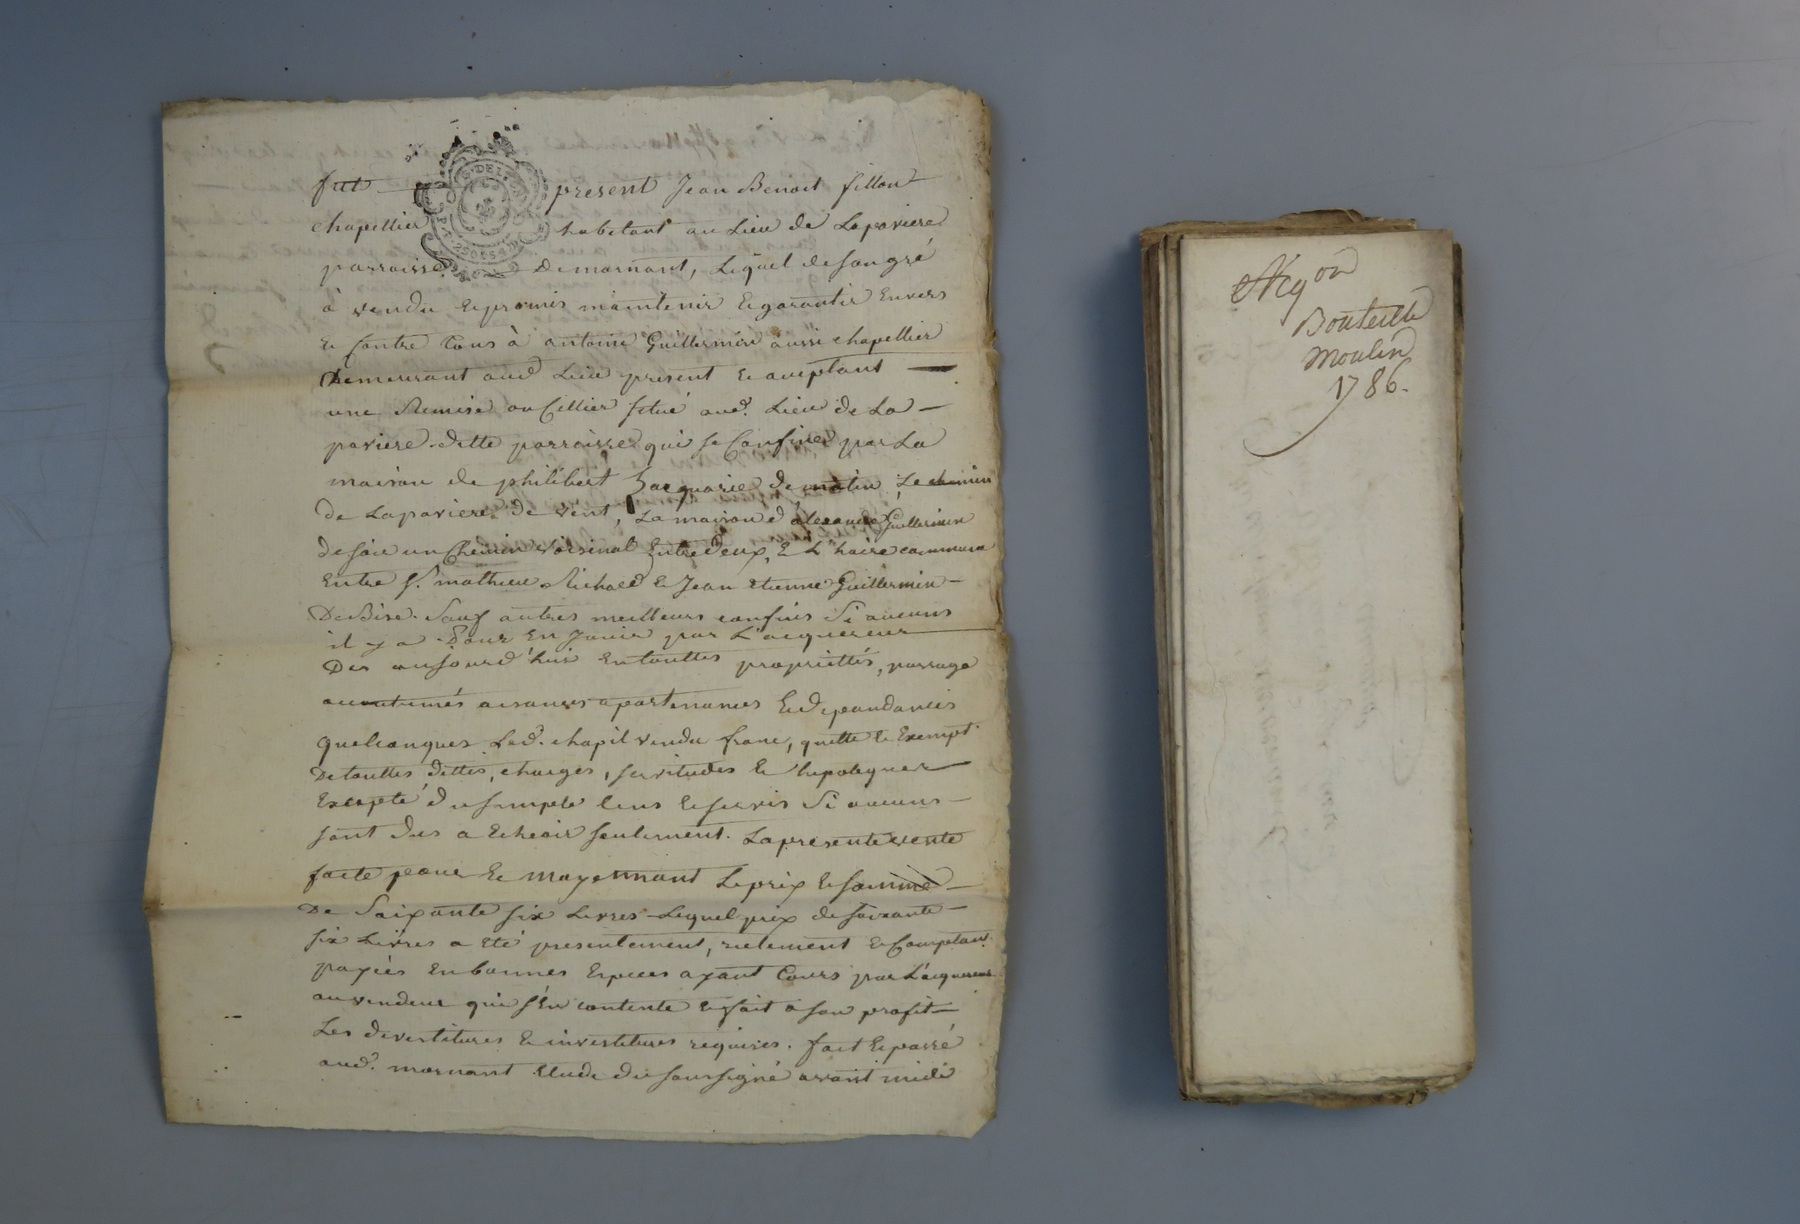 fut present Jean Benoit fillon
chapellier habitant au Lieu de Lapaviere
parroisse De mornant, Lequel de son gré
à vendu et promis maintenir et garantir Envers
et Contre Tous à antoine Guillermin aussi chapellier
Demeurant aud Lieu present et aceptant
une Remise ou Cellier situé aud. Lieu de La
paviere ditte parroisse qui se Confine par La
maison de philibert Zacquarie de matin, Le chemin
de Lapaviere de vent, La maison d'alexandre Guillermin
de soir un Chemin voisinal Entre Deux, & L'haire commune
Entre Sr. mathieu Richard & Jean Etienne Guillermin
De Bise. Sauf autres meilleurs confins Si aucuns
il y a. Pour En Jouir par L'acquereur
Des aujourd'hui En touttes proprietés, passage
accoutumés aisances apartenances Et dependances
quelconques. Led. chapit vendu franc, quitte & Exempt
De touttes dettes, charges, servitudes & hipoteques
Excepté du simple Cens & servis Si aucuns
sont dus a Echeoir seulement. La presente vente
faite pour & moyennant Le prix & somme
De Soixante six Livres Lequel prix de soixante
six Livres a eté presentement, réelement & Comptant
payées En bonnes Especes ayant Cours par L'acquereur
au vendeur qui s'En contente & fait a son profit
Les devestitures & investitures requises. fait & passé
aud. mornant Etude du soussigné avant midi
Bouteille
Moulin
1786.